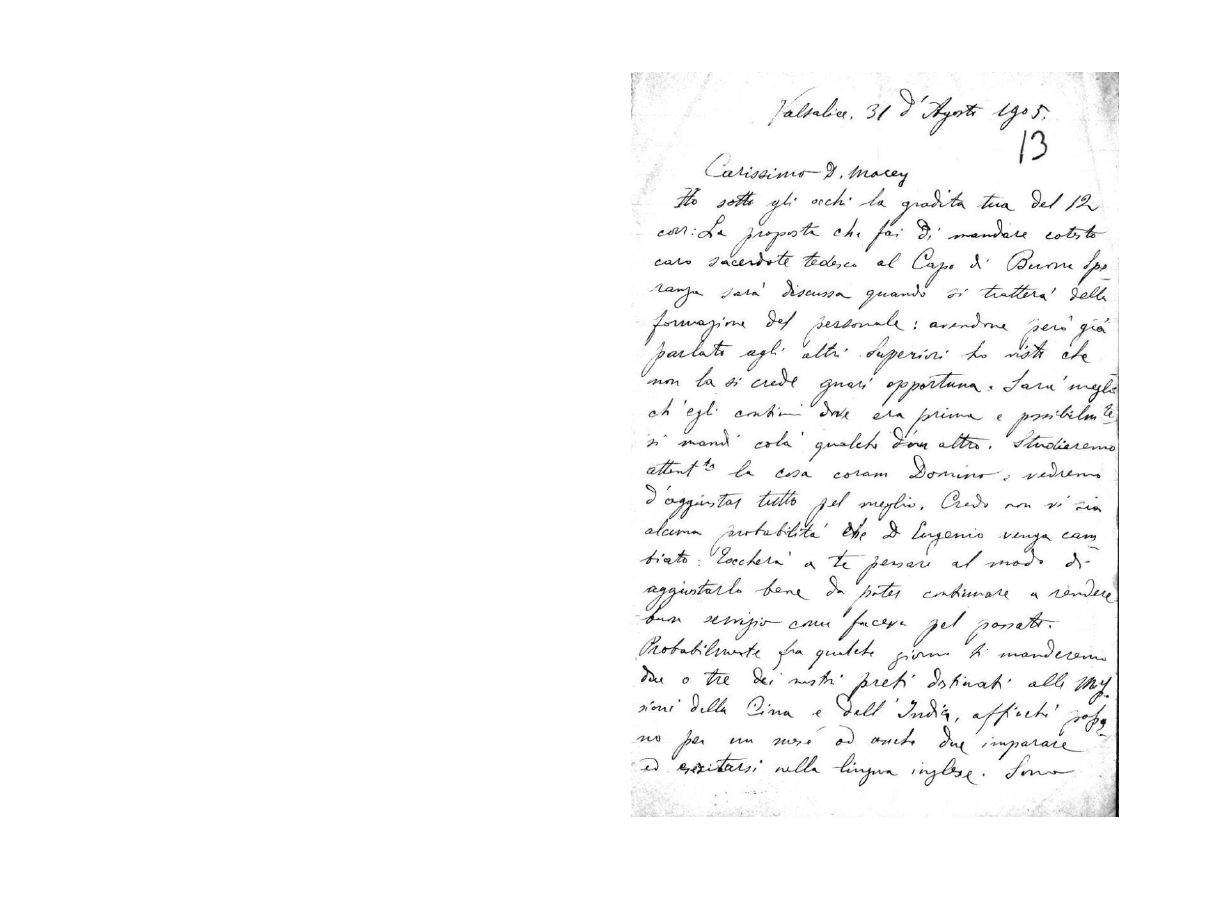 Valsalice. 31 d'Agosto 1905.
13
Carissimo D. Macey
Ho sotto gli occhi la gradita tua del 12
corr: La proposta che fai di mandare cotesto
caro sacerdote tedesco al Capo di Buona Spe
ranza sarà discussa quando si tratterà della
formazione del personale: avendone però già
parlato agli altri Superiori ho visto che
non la si crede guari opportuna. Sarà meglio
ch'egli continui dove era prima e possibilmte
si mandi colà qualche d'un altro. Studieremo
attentte la cosa coram Domino e vedremo
d'aggiustar tutto pel meglio. Credo non vi sia
alcuna probabilità che D Eugenio venga cam
biato: Toccherà a te pensare al modo di
aggiustarlo bene da poter continuare a rendere
buon servizio come faceva pel passato.
Probabilmente fra qualche giorno ti manderemo
due o tre dei nostri preti destinati alle Mis
sioni della Cina e dell'India, affinché possa
no per un mese od anche due imparare
ed esercitarsi nella lingua inglese. Sono